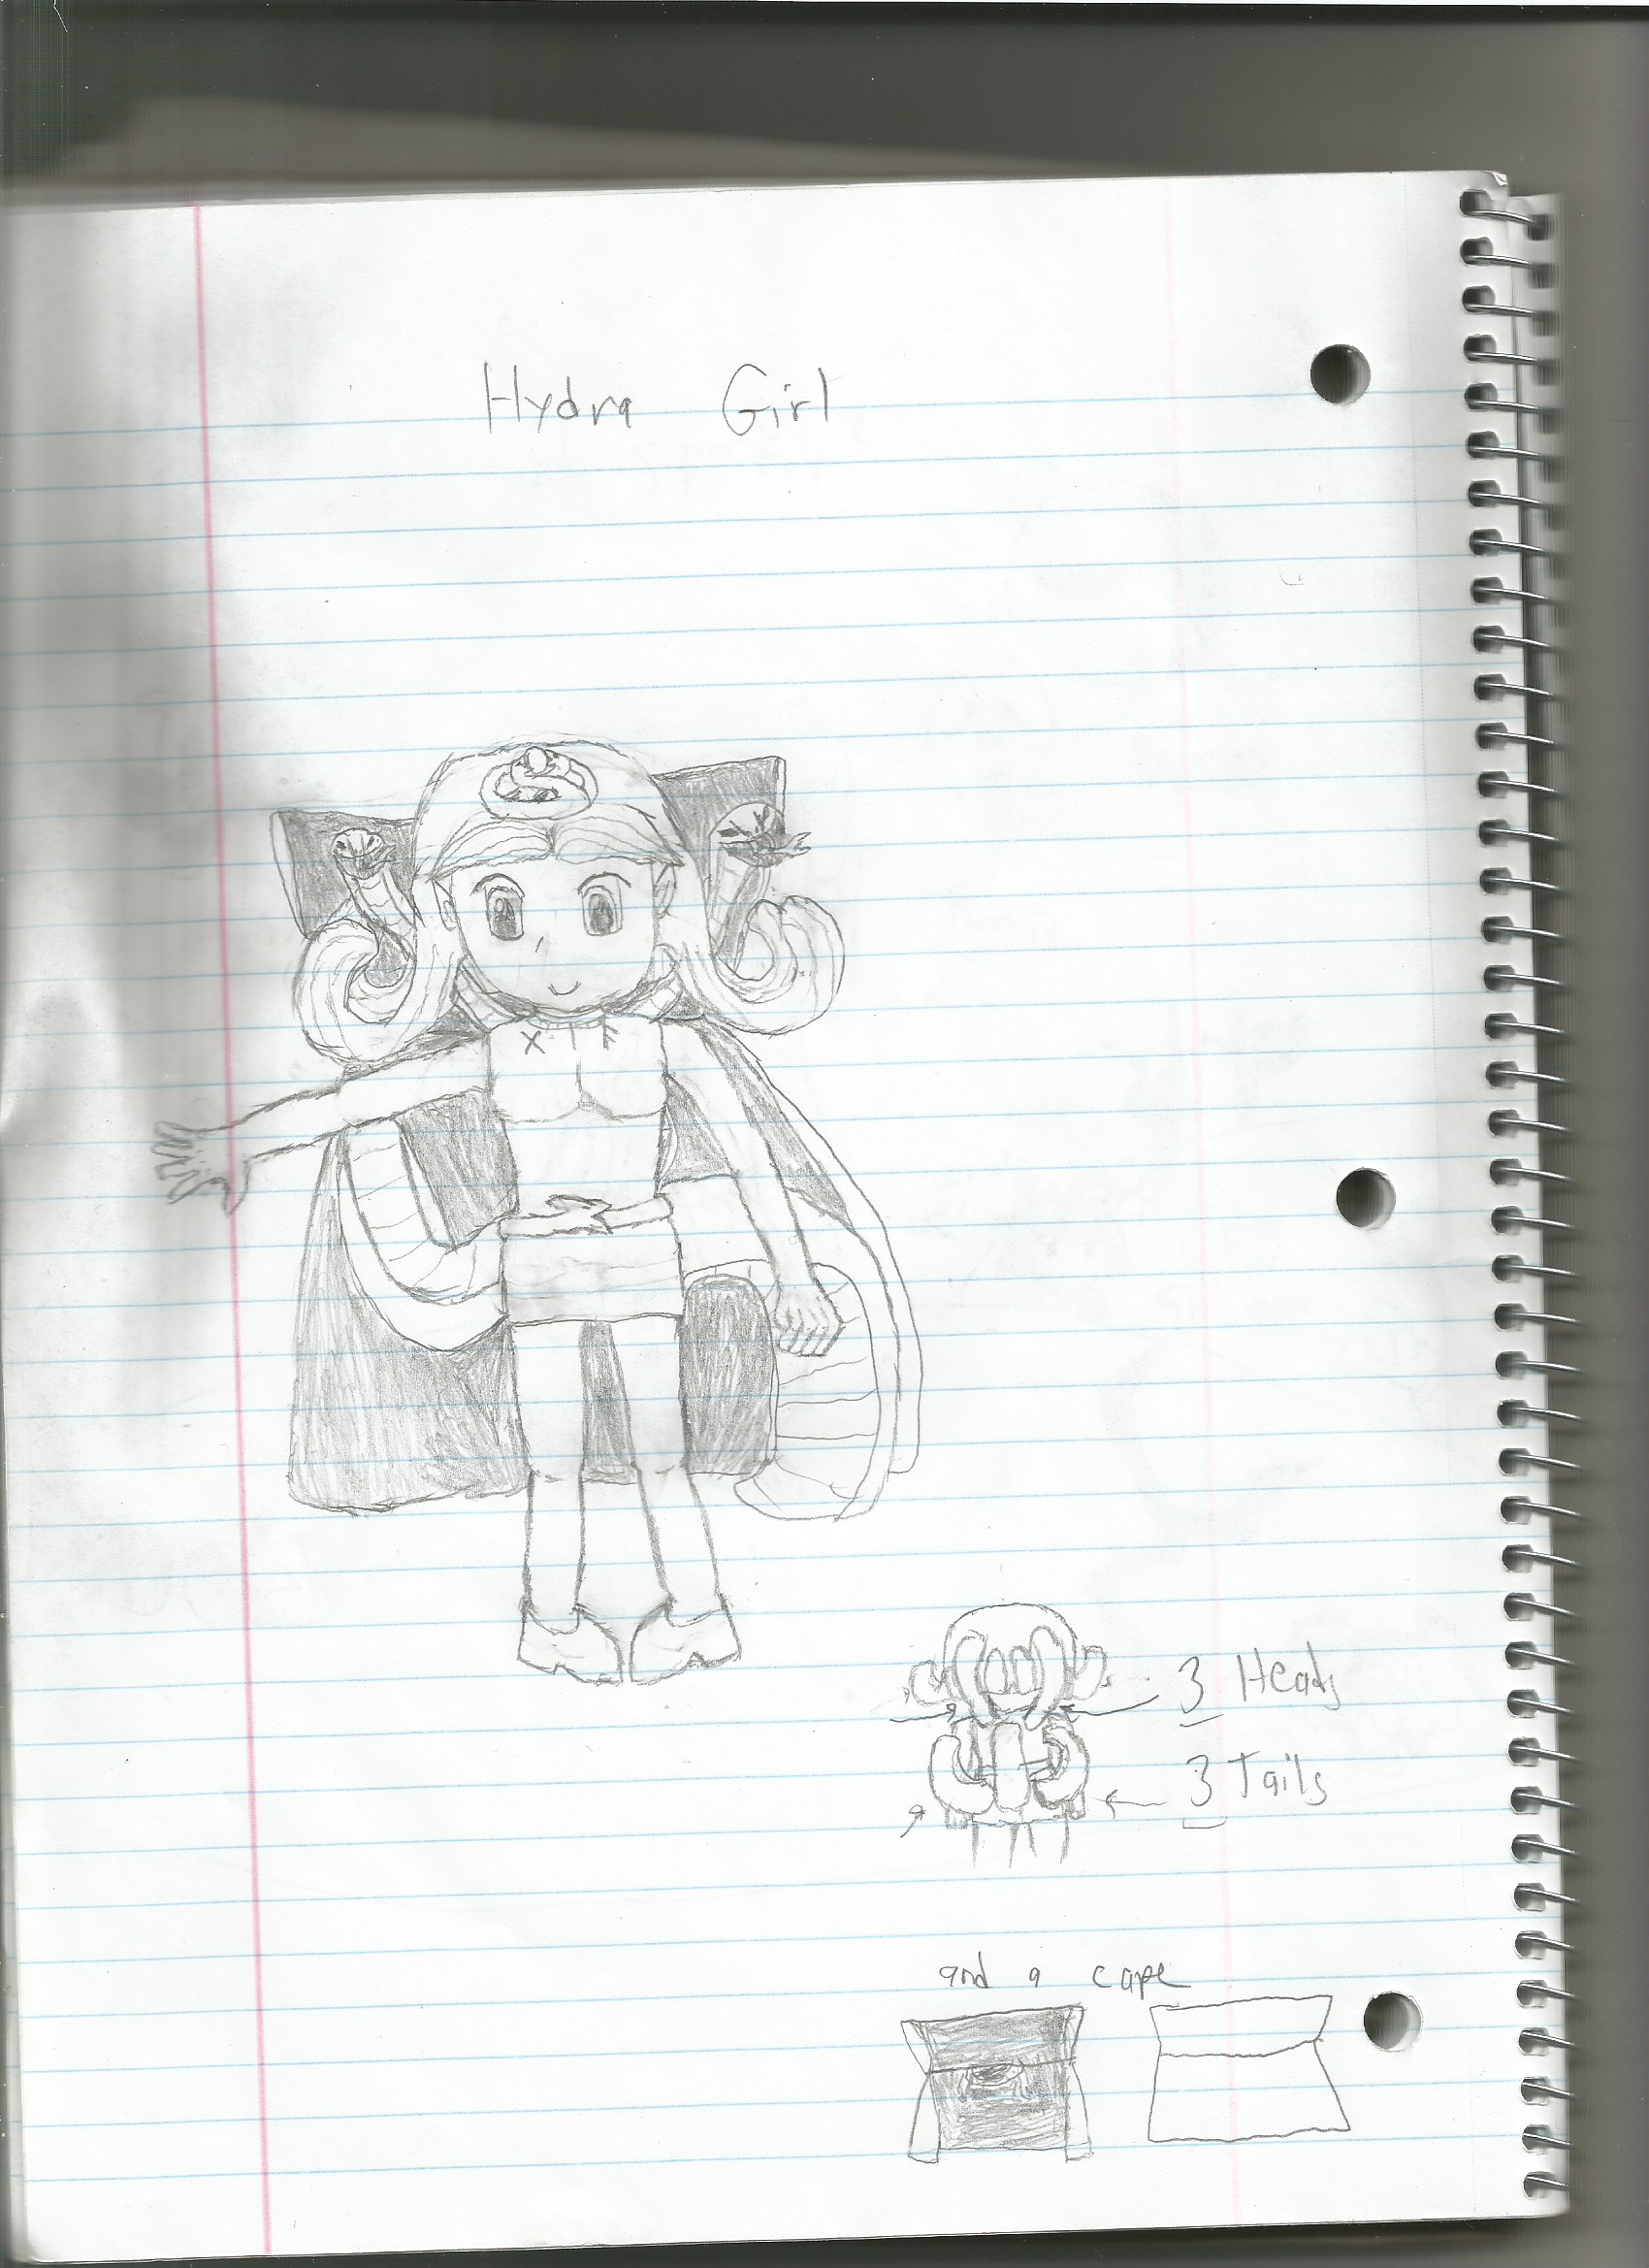 Hydra Girl
3 Heads
3 Tails
and a cape